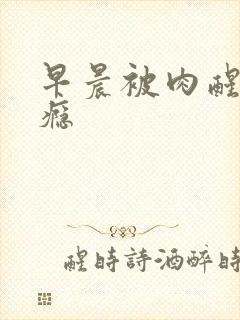 早晨被肉醒
瘾
醒時詩酒醉時